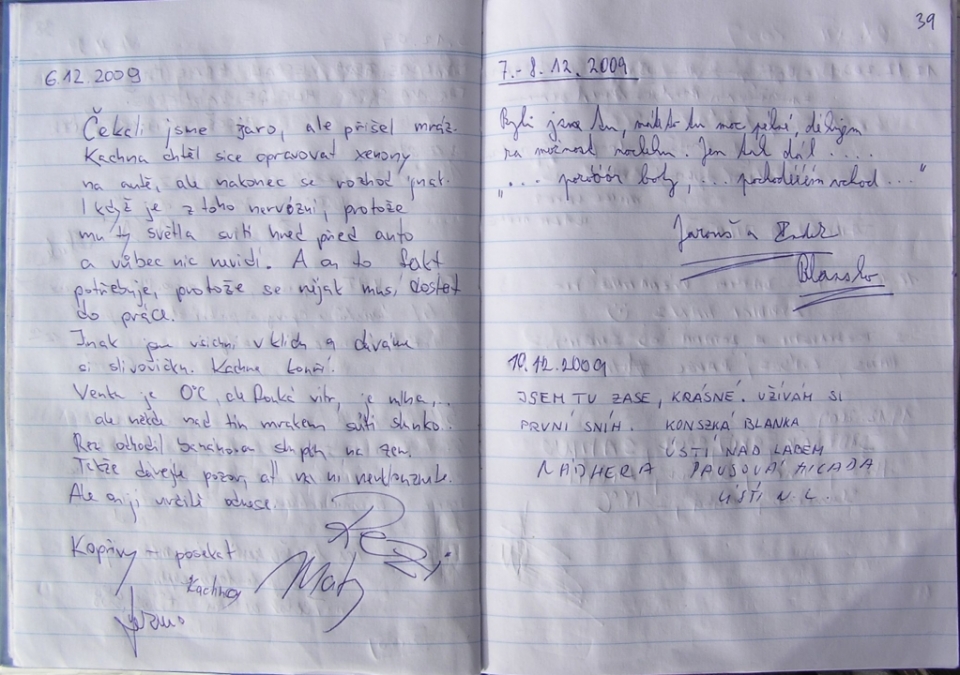 6.12.2009
Čekali jsme jaro, ale přišel mráz.
Kachna chtěl sice opravovat xenony
na autě, ale nakonec se rozhod jinak.
I když je z toho nervózní, protože
mu ty světla svítí hned před auto
a vůbec nic nevidí. A on to fakt
potřebuje, protože se nějak musí dostat
do práce.
Jinak jsme všichni v klidu a dáváme
si slivovičku. Kachna končí.
Venku je 0°C, fouká vítr, je mlha,..
ale někde nad tím mrakem svítí slunko.
odhodil banánovou slupku na zem.
Takže dávejte pozor, ať vás ni neuklouzne.
Ale on ji určitě odnese.
Kopřivy – posekat
Kachny
39
7.-8.12.2009
Byli jsme tu, máte to tu moc pěkné, děkujem
za možnost noclehu. Jen tak dál ....
"... boty, ... ..."
Jarouš a
Blansko
10.12.2009
JSEM TU ZASE, KRÁSNÉ. UŽÍVÁM SI
PRVNÍ SNÍH. KONSZKÁ BLANKA
ÚSTÍ NAD LABEM
NÁDHERA
ÚSTÍ N.L.